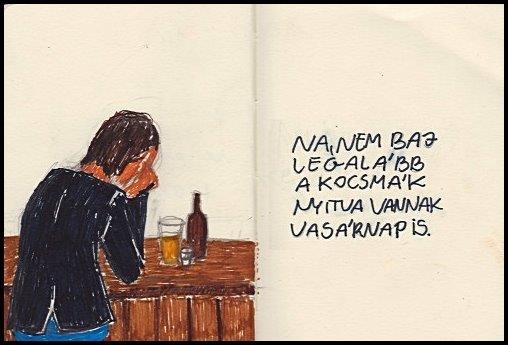 NA, NEM BAJ
LEGALÁBB
A KOCSMÁK
NYITVA VANNAK
VASÁRNAP IS.